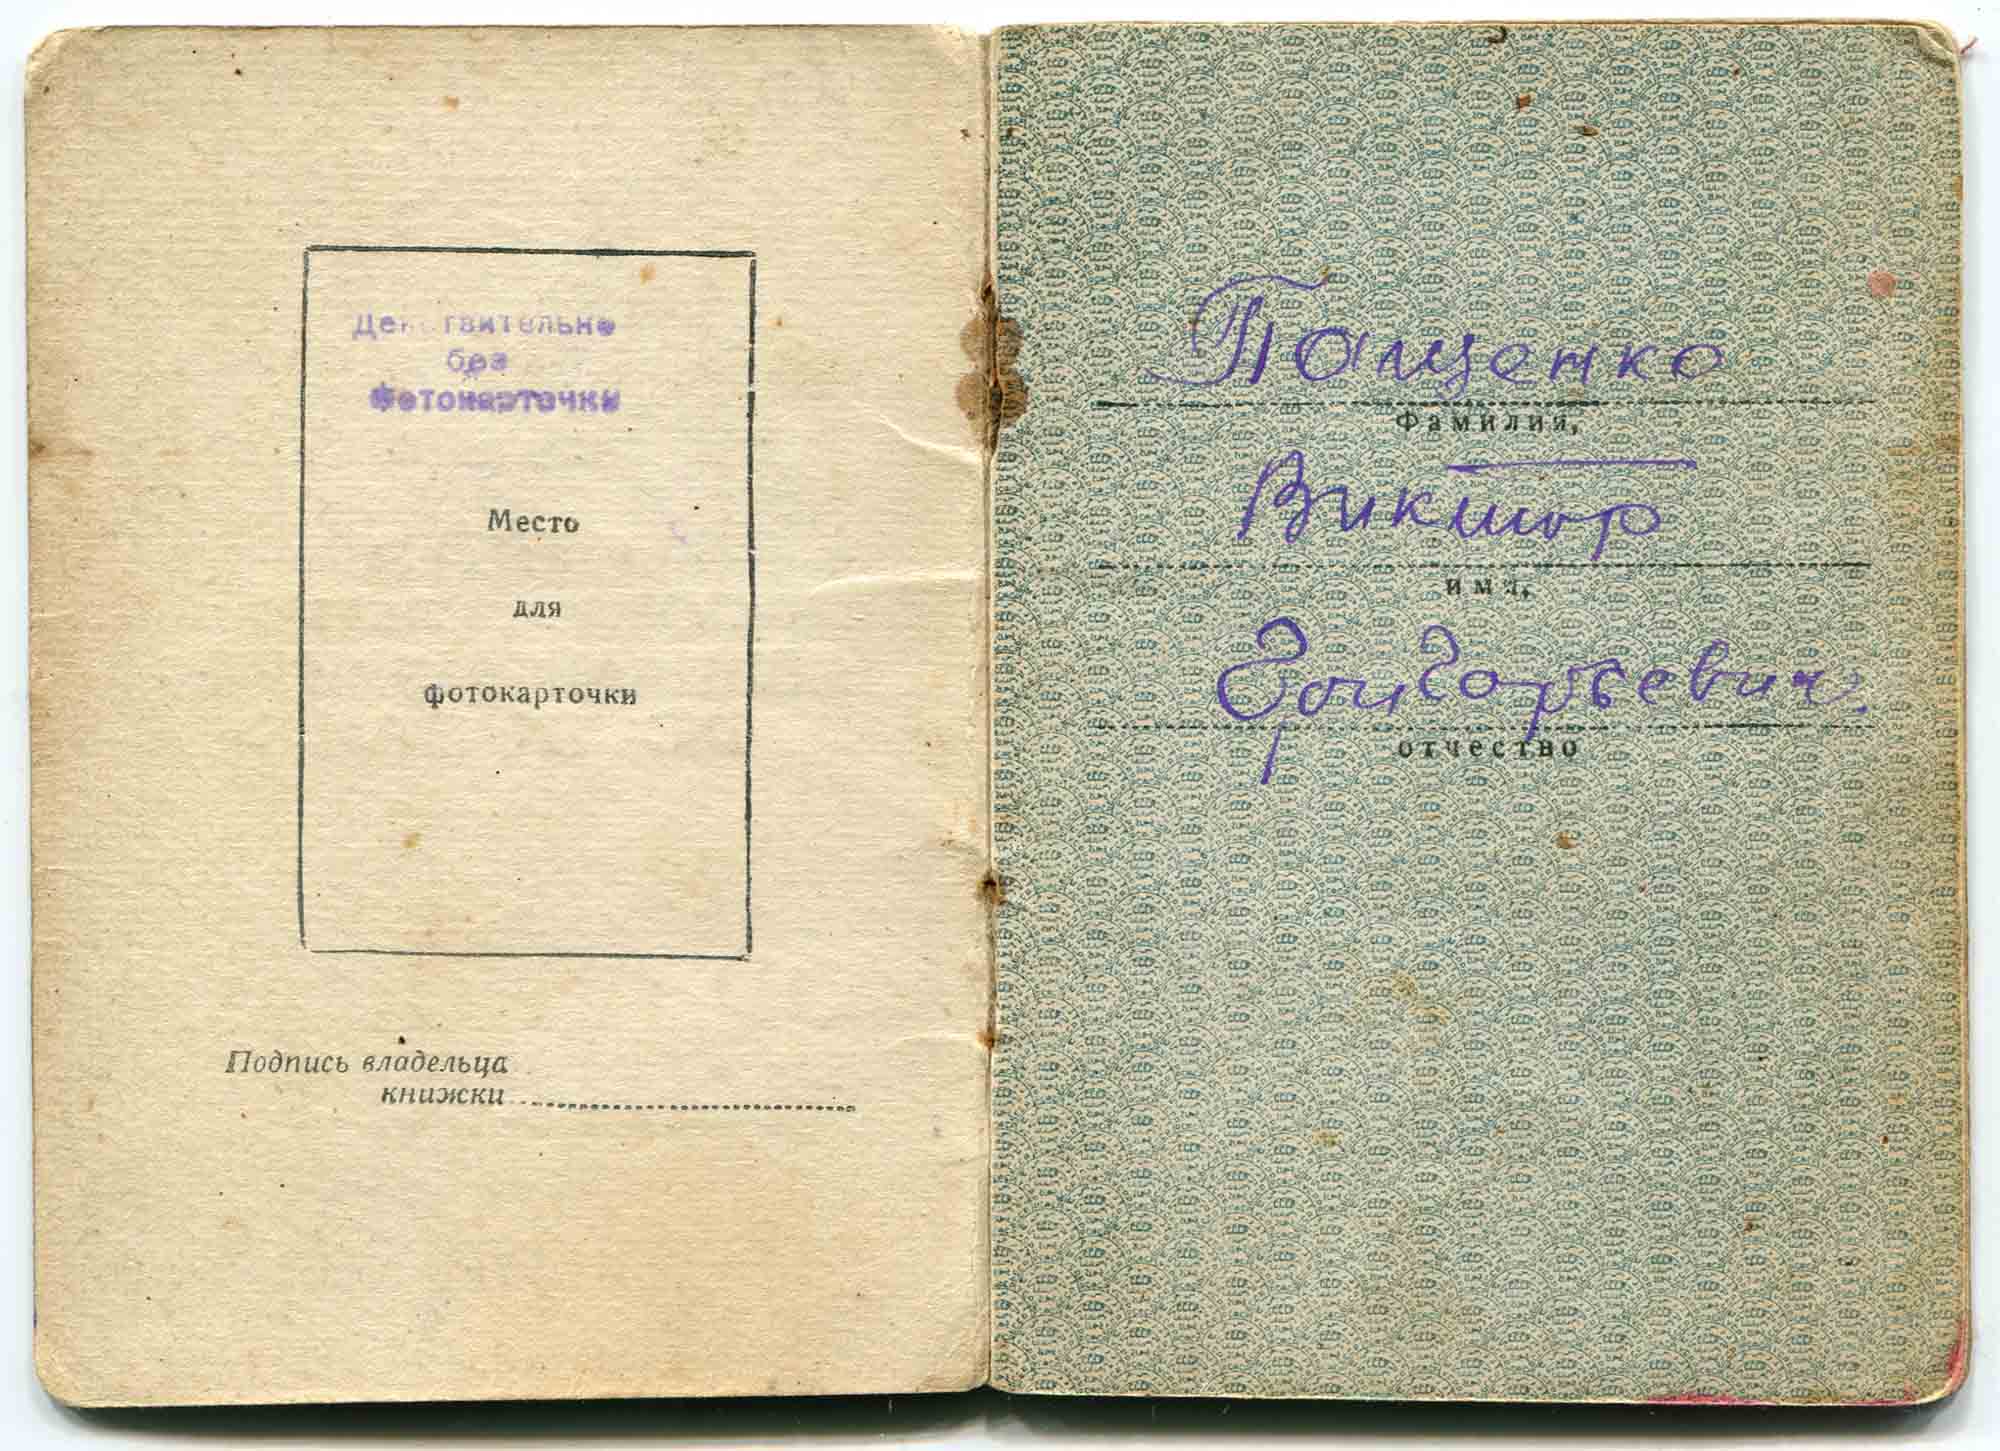 Действительно
без
Фотокарточки
Место
для
фотокарточки
Подпись владельца
книжки
Пащенко
Фамилия,
Виктор
имя,
Григорьевич.
отчество